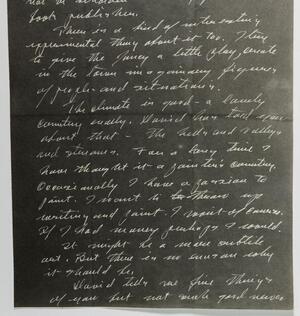 book publisher.
There is a kind of interesting
experimental thing about it too. I try
to give the fancy a little play, create
in the town imaginary figures
of people and situations.
The climate is good - a lovely
country really. David has told you
about that - the hills and valleys
and streams. For a long time I
have thought it a painter's country.
Occasionally I have a passion to
paint. I want to throw up
writing and paint. I want of course.
If I had money perhaps I would.
It might be a more subtle
art. But there is no reason why
it should be.
David tells me fine things
of you but not much good news